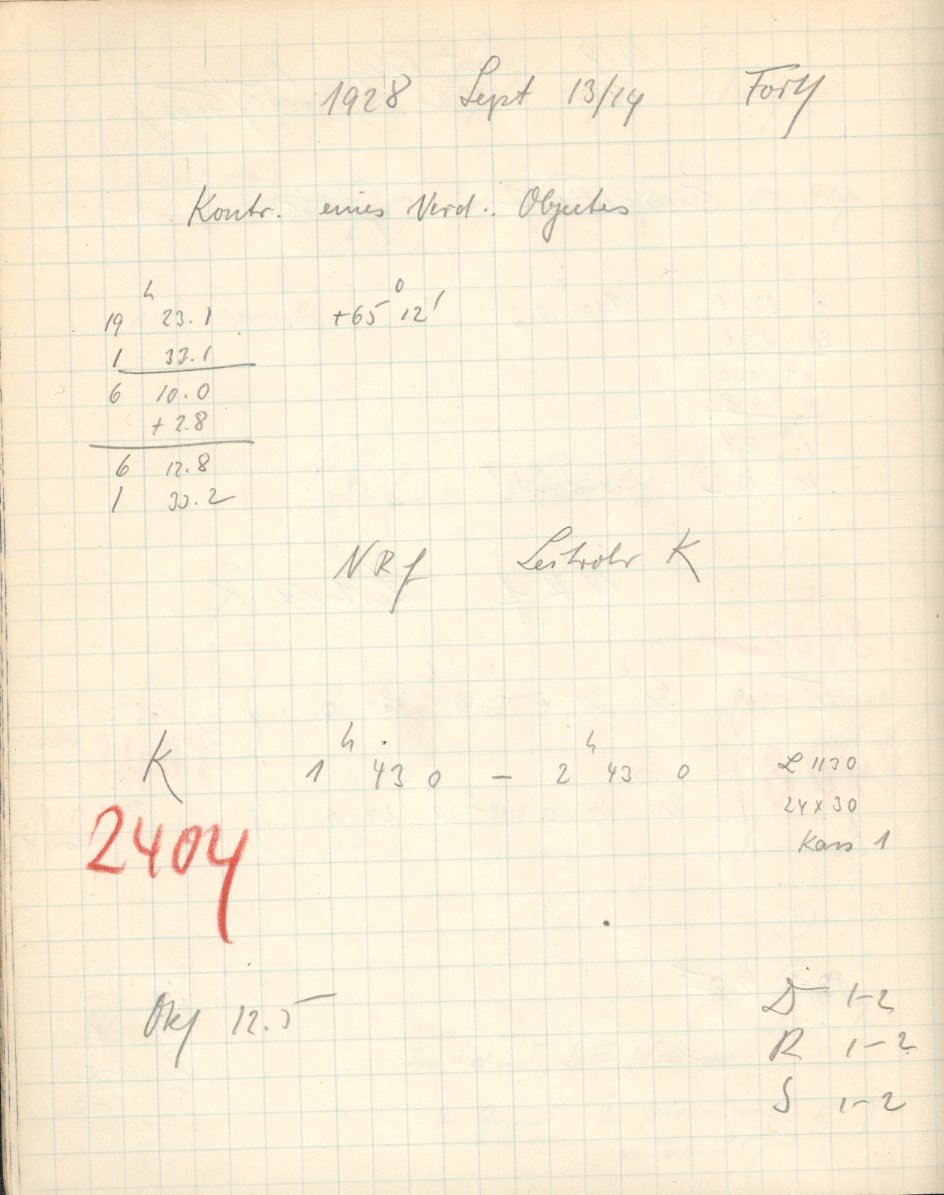 1928 Sept 13/14 Forts
Kontr. eines Verd. Objectes
19 h 23.1 +65° 12'
1 33.1
6 10.0
+ 2.8
6 12.8
1 33.2
NRf Leitrohr K
K 1 h 43 0 – 2 h 43 0 L 1130
24 x 30
2404
Kass 1
Okj 12.5
D 1-2
R 1-2
S 1-2